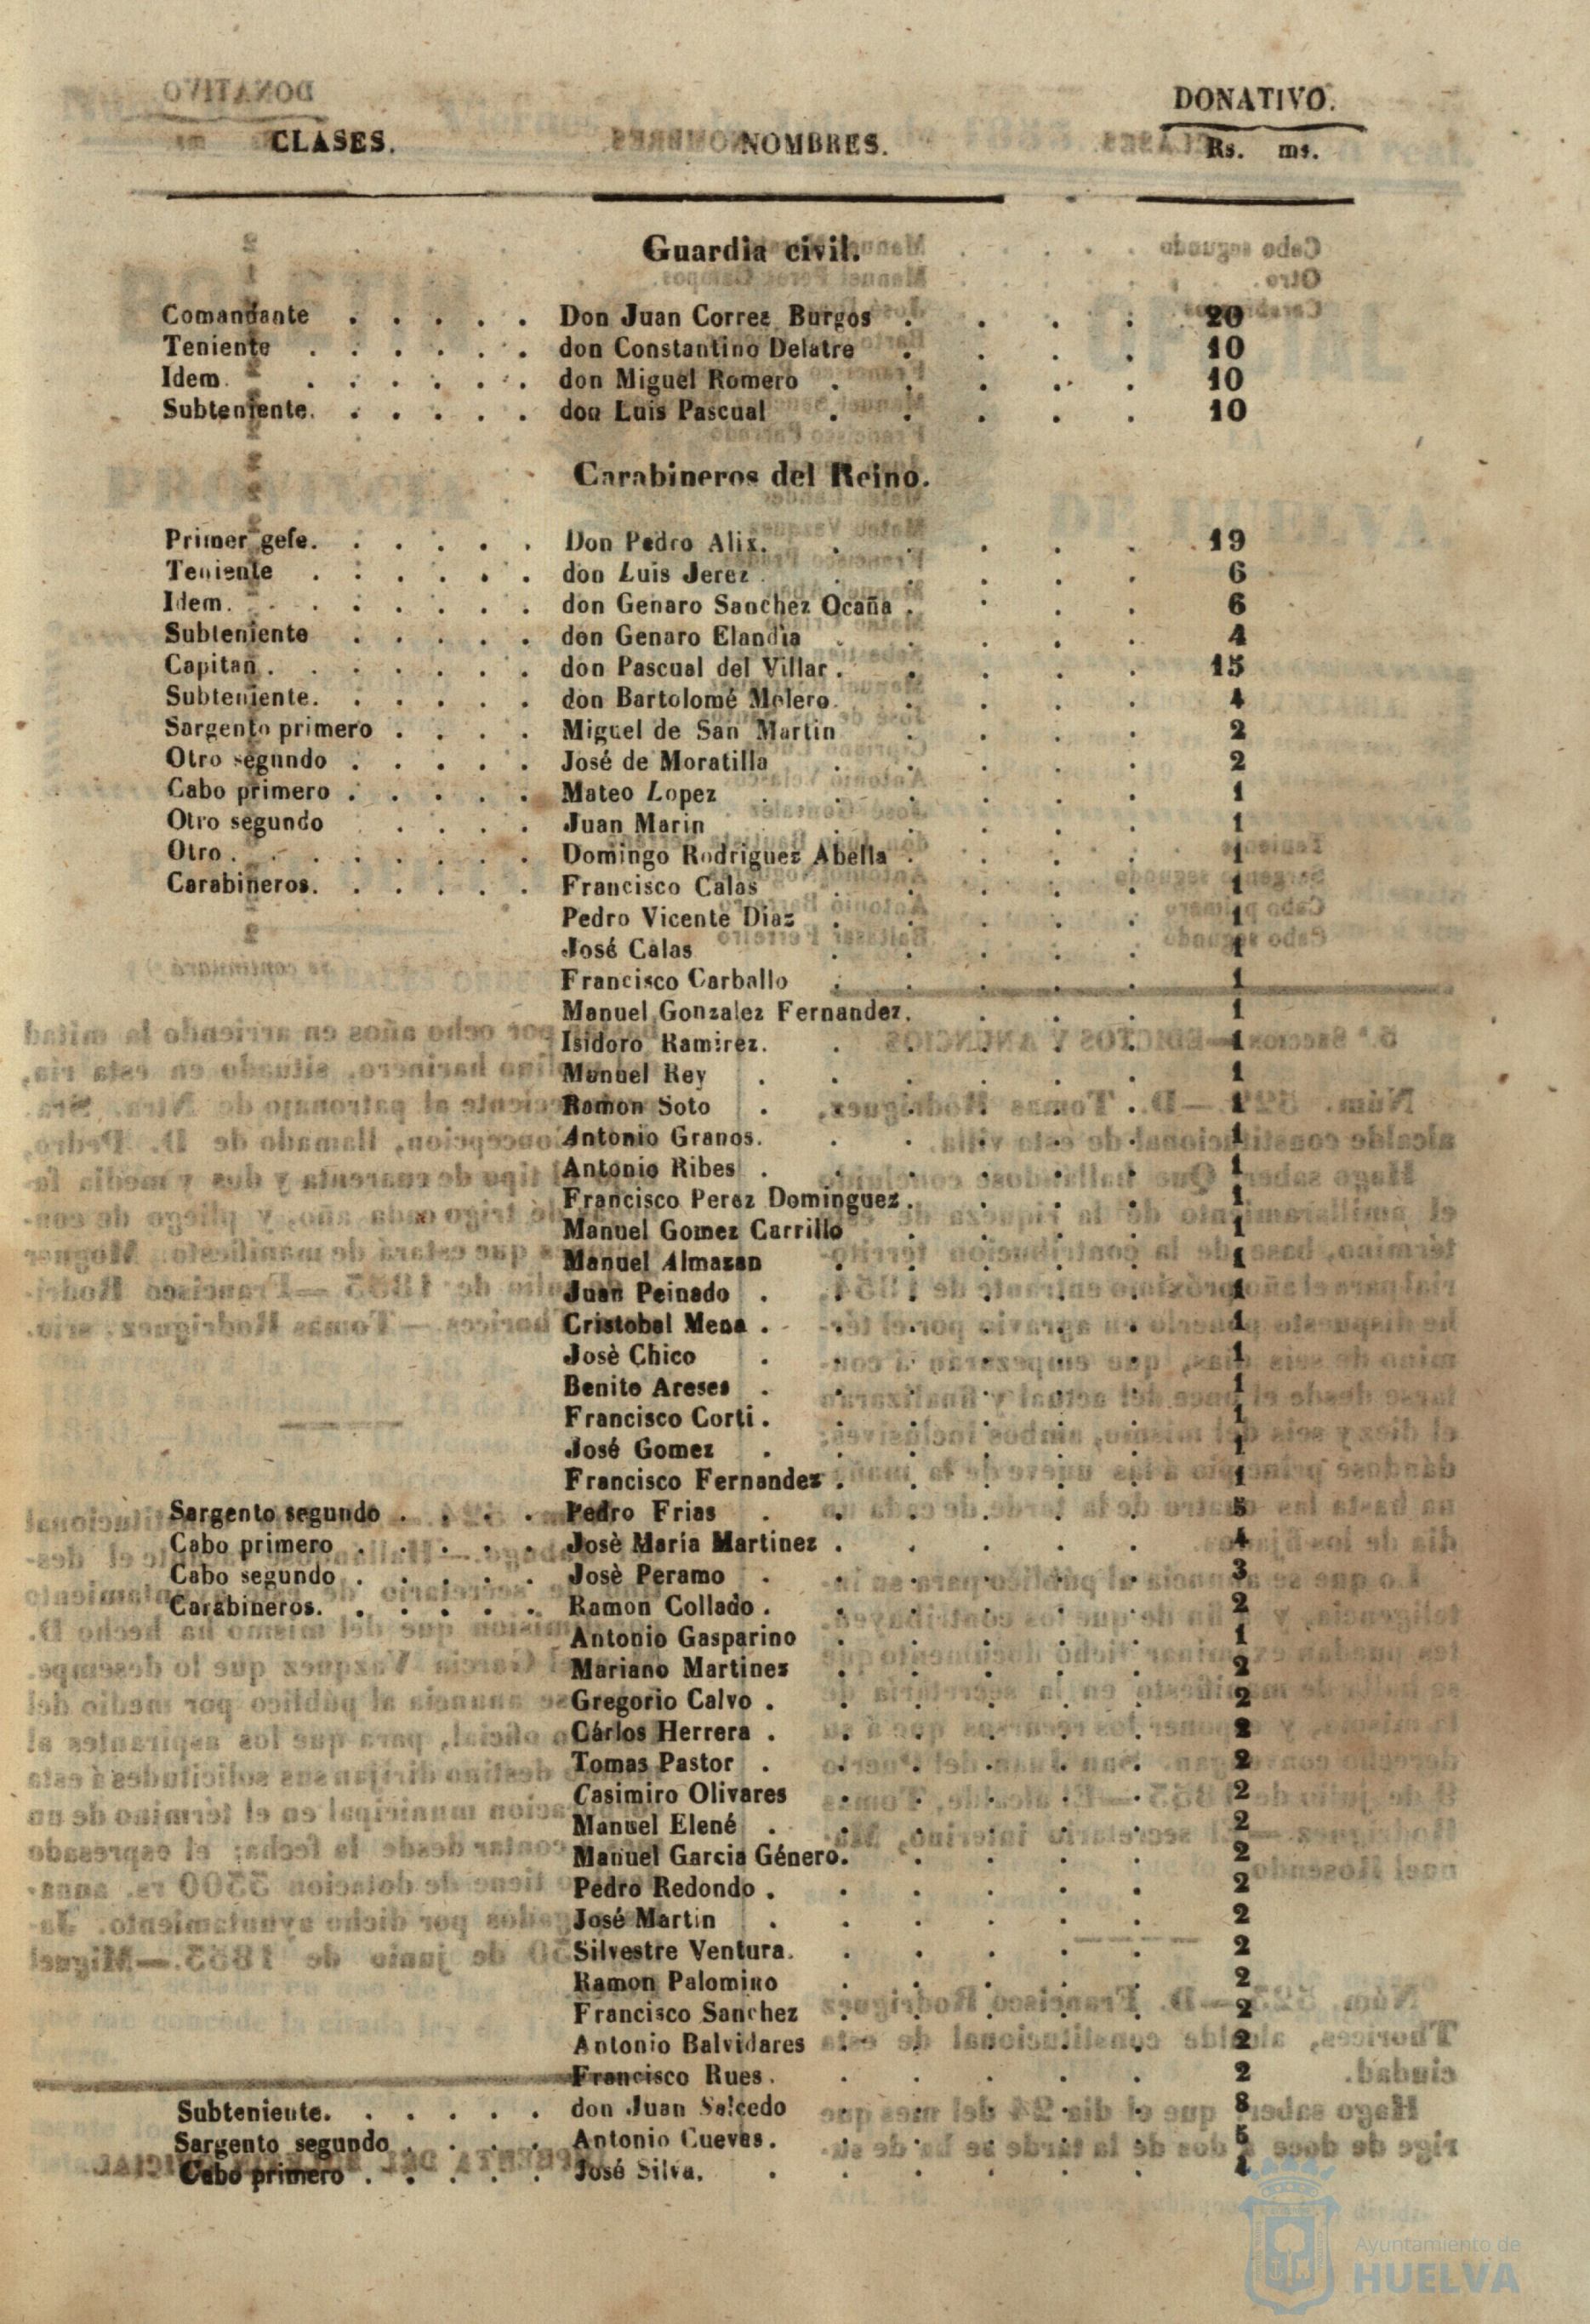 DONATIVO.
CLASES. NOMBRES. Rs. ms.
Guardia civil.
Comandante . . . . . Don Juan Correz Burgos . . . . 20
Teniente . . . . . . don Constantino Delatre . . . . 10
Idem. . . . . . . don Miguel Romero . . . . . 10
Subteniente. . . . . . don Luis Pascual . . . . . 10
Carabineros del Reino.
Primer gefe. . . . . . Don Pedro Alix. . . . . . 19
Teniente . . . . . . don Luis Jerez . . . . . 6
Idem. . . . . . . don Genaro Sanchez Ocaña . . . . 6
Subteniente . . . . . don Genaro Elandia . . . . . 4
Capitan . . . . . . . don Pascual del Villar . . . . . 15
Subteniente. . . . . . don Bartolomé Molero. . . . . 4
Sargento primero . . . . Miguel de San Martin . . . . 2
Otro segundo . . . . . José de Moratilla . . . . . 2
Cabo primero . . . . . Mateo Lopez . . . . . . 1
Otro segundo . . . . Juan Marin . . . . . 1
Otro . . . . . . . . Domingo Rodriguez Abella . . . . 1
Carabineros. . . . . . Francisco Calas . . . . . 1
Pedro Vicente Diaz . . . . . 1
José Calas . . . . . 1
Francisco Carballo . . . . . 1
Manuel Gonzalez Fernandez. . . . 1
Isidoro Ramirez. . . . . . 1
Manuel Rey . . . . . . 1
Ramon Soto . . . . . . 1
Antonio Granos. . . . . . 1
Antonio Ribes . . . . . . 1
Francisco Perez Dominguez . . . . 1
Manuel Gomez Carrillo . . . . 1
Manuel Almazan . . . . . 1
Juan Peinado . . . . . . 1
Cristobal Mena . . . . . . 1
Josè Chico . . . . . . 1
Benito Areses . . . . . . 1
Francisco Corti . . . . . . 1
José Gomez . . . . . . 1
Francisco Fernandez . . . . . 1
Sargento segundo . . . . Pedro Frias . . . . . . 5
Cabo primero . . . . . Josè María Martinez . . . . . 4
Cabo segundo . . . . . Josè Peramo . . . . . . 3
Carabineros. . . . . . Ramon Collado . . . . . . 2
Antonio Gasparino . . . . . 1
Mariano Martinez . . . . . 2
Gregorio Calvo . . . . . . 2
Cárlos Herrera . . . . . . 2
Tomas Pastor . . . . . . 2
Casimiro Olivares . . . . . 2
Manuel Elené . . . . . . 2
Manuel Garcia Género. . . . . 2
Pedro Redondo . . . . . . 2
José Martin . . . . . . 2
Silvestre Ventura. . . . . . 2
Ramon Palomino . . . . . 2
Francisco Sanchez . . . . . 2
Antonio Balvidares . . . . . 2
Francisco Rues . . . . . . 2
Subteniente. . . . . . don Juan Salcedo . . . . . 8
Sargento segundo . . . . Antonio Cueves. . . . . . 5
Cabo primero . . . . . José Silva. . . . . . . 4
Ayuntamiento de
HUELVA